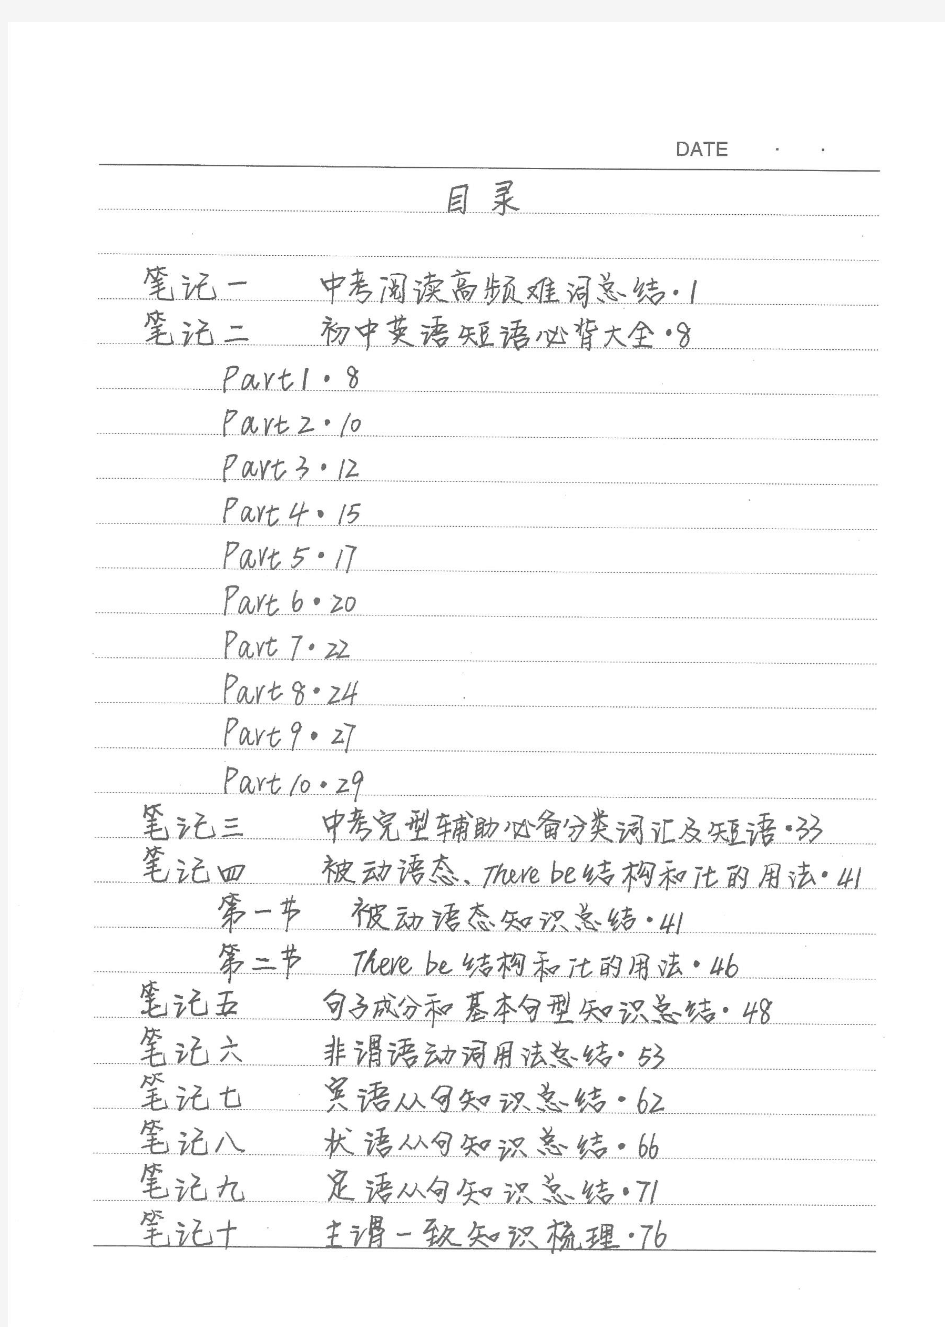 DATE · ·
目录
笔记一 中考阅读高频难词总结·1
笔记二 初中英语短语必背大全·8
Part1·8
Part2·10
Part3·12
Part4·15
Part5·17
Part6·20
Part7·22
Part8·24
Part9·27
Part10·29
笔记三 中考完型辅助必备分类词汇及短语·33
笔记四 被动语态、There be结构和it的用法·41
第一节 被动语态知识总结·41
第二节 There be结构和it的用法·46
笔记五 句子成分和基本句型知识总结·48
笔记六 非谓语动词用法总结·53
笔记七 宾语从句知识总结·62
笔记八 状语从句知识总结·66
笔记九 定语从句知识总结·71
笔记十 主谓一致知识梳理·76